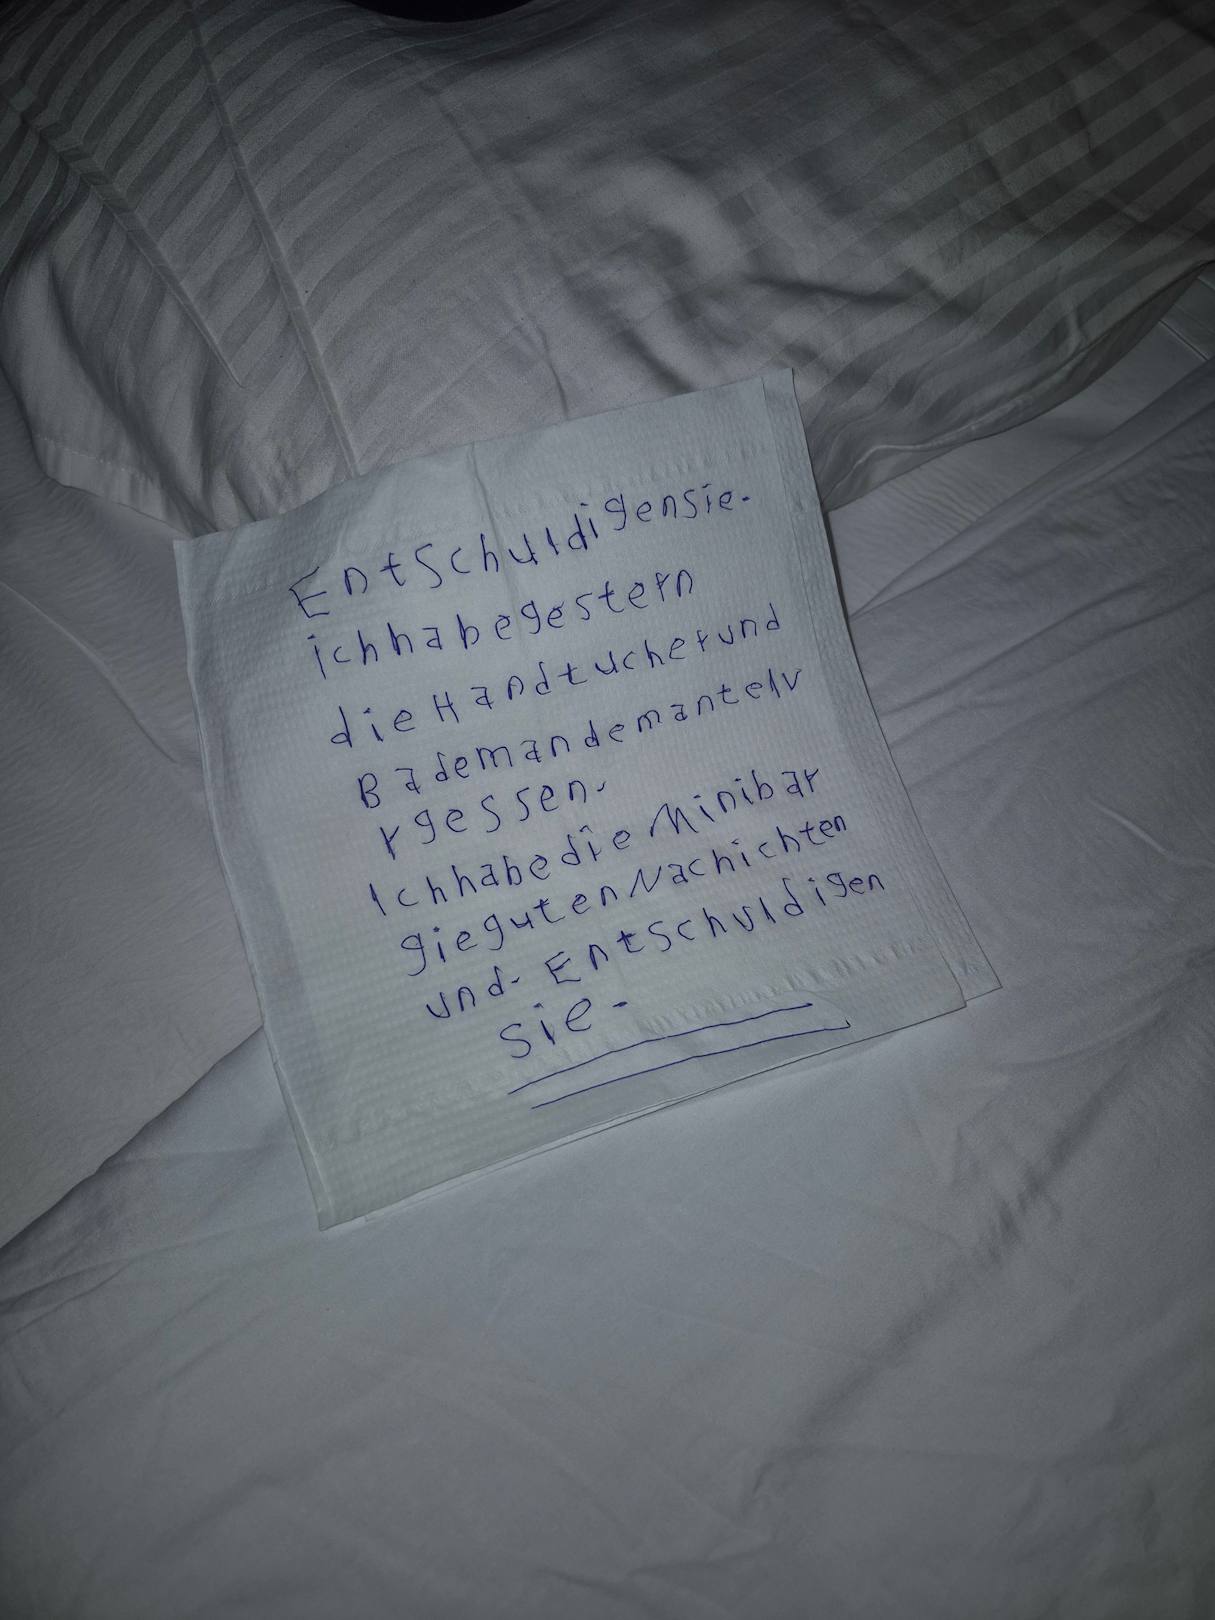 Entschuldigensie.
ichhabegestern
dieHandtucherund
Bademandemantelv
rgessen.
IchhabedieMinibar
giegutenNachichten
und. Entschuldigen
sie.